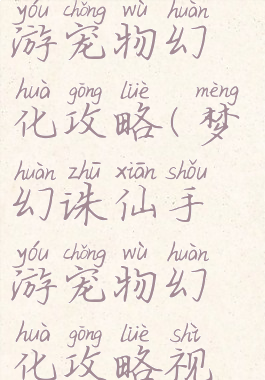 yóu chǒng wù huàn
游宠物幻
huà gōng lüè mèng
化攻略(梦
huàn zhū xiān shǒu
幻诛仙手
yóu chǒng wù huàn
游宠物幻
huà gōng lüè shì
化攻略视